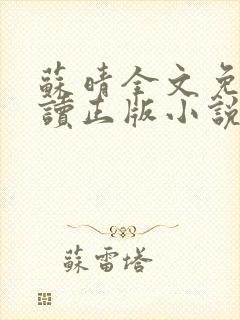 蘇晴全文免
讀正版小說
蘇雷塔